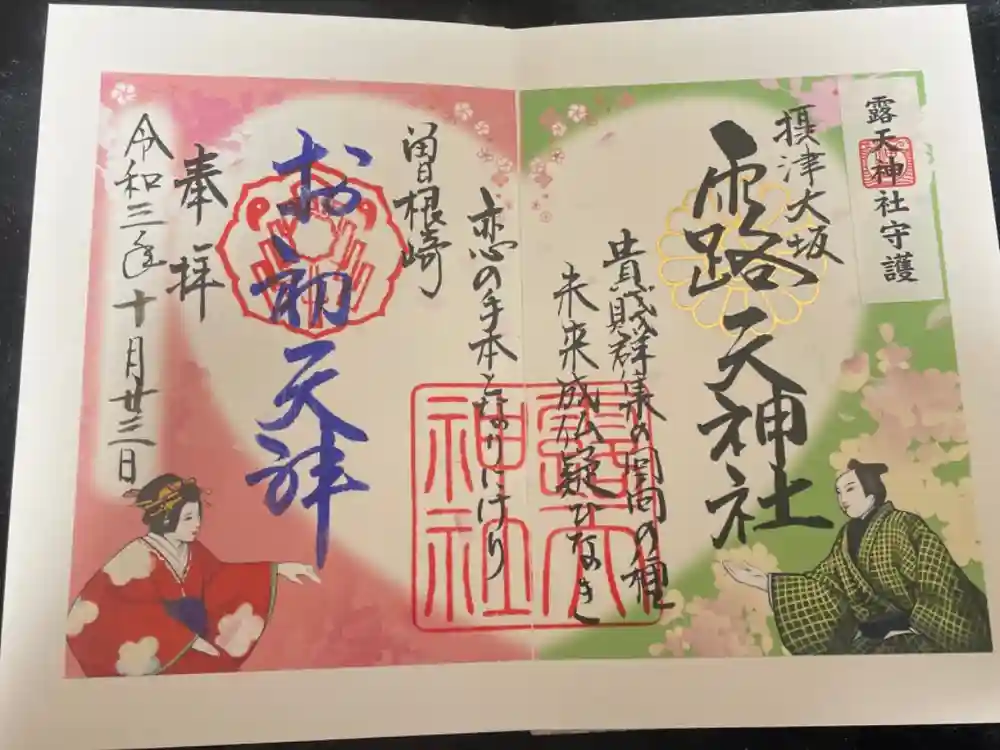 露天神社守護
摂津大坂
露天神社
貴賎群集の回向の種
未来成仏疑ひなき
恋の手本となりにけり
露天神社
曽根崎
お初天神
奉拝
令和三年十月廿三日